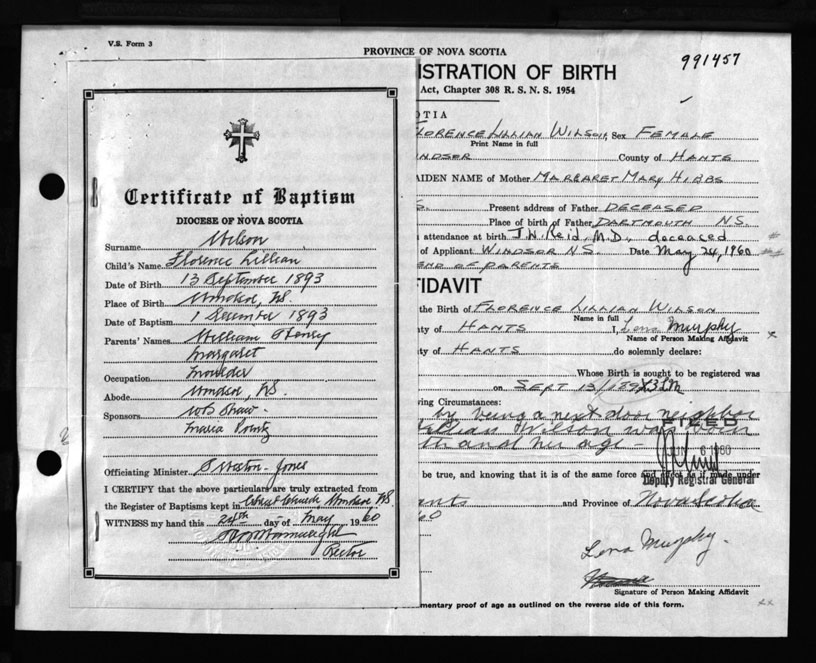 V.S. Form 3
PROVINCE OF NOVA SCOTIA
991457
ISTRATION OF BIRTH
Act, Chapter 308 R. S. N. S. 1954
Certificate of Baptism
DIOCESE OF NOVA SCOTIA
Surname Wilson
Child's Name Florence Lillian
Date of Birth 13 September 1893
Place of Birth Windsor, NS.
Date of Baptism 1 December 1893
Parents' Names William Henry
Margaret
Occupation Moulder
Abode Windsor, NS.
Sponsors Shaw
Maria
Officiating Minister Jones
I CERTIFY that the above particulars are truly extracted from
the Register of Baptisms kept in Christ Church Windsor NS.
WITNESS my hand this 24th day of May 1960
Rector
OTIA
FLORENCE LILLIAN WILSON, Sex FEMALE
Print Name in full
INDSOR County of HANTS
AIDEN NAME of Mother MARGARET MARY HIBBS
S. Present address of Father DECEASED
Place of birth of Father DARTMOUTH N.S.
attendance at birth J.N. Reid, M.D., deceased
of Applicant WINDSOR N.S. Date May 24, 1960
END OF PARENTS
FIDAVIT
the Birth of FLORENCE LILLIAN WILSON
Name in full
ty of HANTS I, Lena Murphy
Name of Person Making Affidavit
ty of HANTS do solemnly declare:
Whose Birth is sought to be registered was
on SEPT 13/1893 LM
ing Circumstances:
by being a next door neighbor
Lillian Wilson was born
th and her age -
FILED
JUN 6 1960
Deputy Registrar General
be true, and knowing that it is of the same force and effect as if made under
ants and Province of Nova Scotia
60
Lena Murphy.
Signature of Person Making Affidavit
mentary proof of age as outlined on the reverse side of this form.